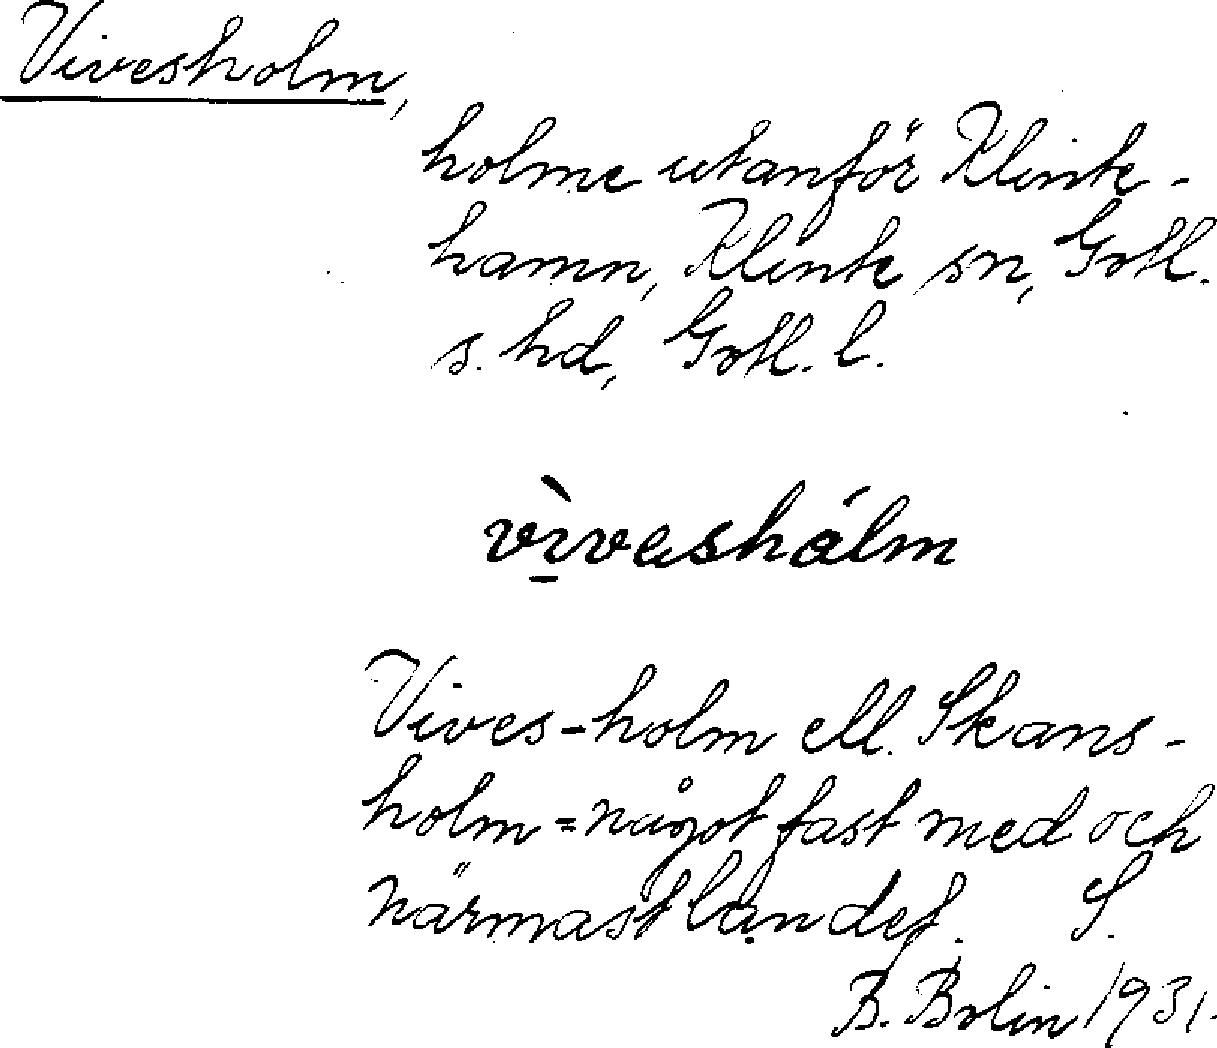 Vivesholm,
holme utanför Klinte-
hamn, Klinte sn, Gotl.
s. hd, Gotl. l.
vìvęshálm
Vives-holm ell. Skans-
holm = något fast med och
närmast landet. S.
B. Bolin 1931.